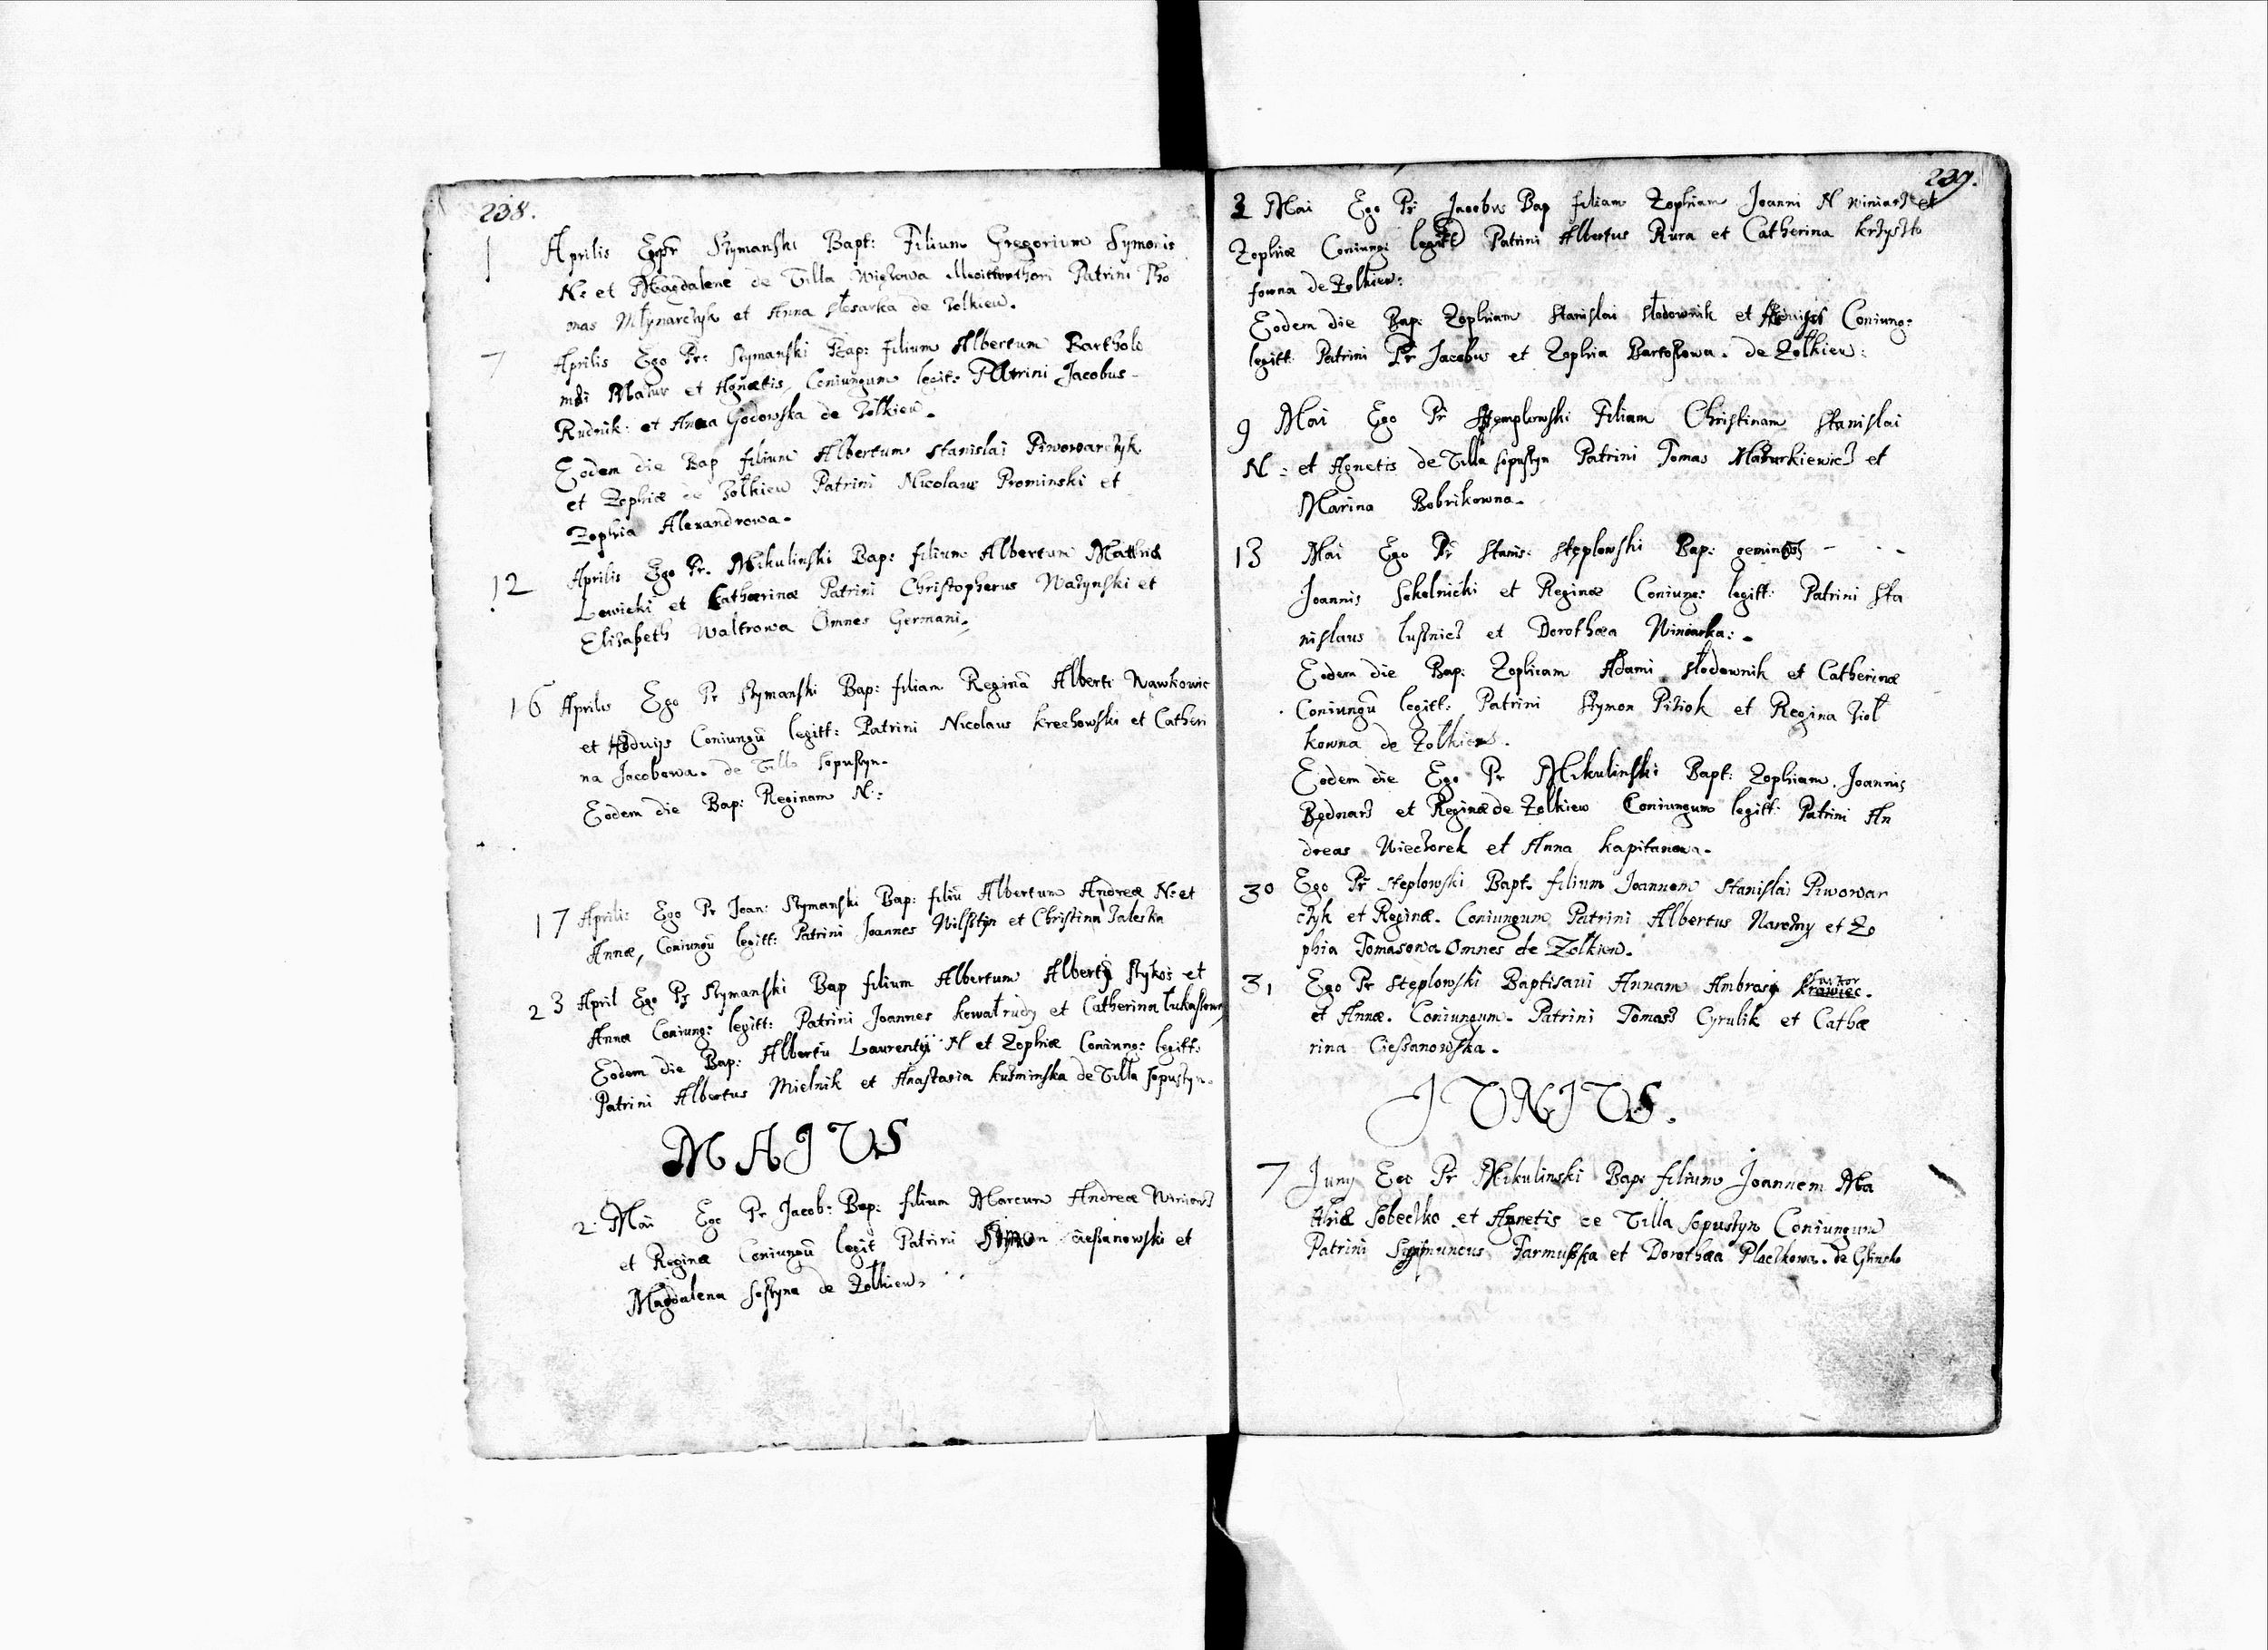 238.
1 Aprilis Ego Pr Szymanski Bapt: Filium Gregorium Symonis
N: et Magdalene de Villa Patrini Tho
mas Młynarczyk et Anna slosarka de Zolkiew.
7 Aprilis Ego Pr: Szymanski Bap: filium Albertum Bartholo
maei Mazur et Agnætis Coniungum legit: Patrini Jacobus
Rudnik: et Anna Godowska de Zolkiew.
Eodem die Bap filium Albertum Stanislai Piwowarczyk
et Zophiæ de Zołkiew Patrini Nicolaus Prominski et
Zophia Alexandrowa.
12 Aprilis Ego Pr. Mikulinski Bap: filium Albertum Mathiæ
Lewicki et Catharinæ Patrini Christopherus Wazynski et
Elisabeth Waltrowa Omnes Germani.
16 Aprilis Ego Pr Szymanski Bap: filiam Reginã Alberti Nawkowic
et Hedvijs Coniungũ legitt: Patrini Nicolaus krechowski et Catheri
na Jacobowa. de Villa Sopuszyn.
Eodem die Bap: Reginam N:
17 Aprilis Ego Pr Joan: Szymanski Bap: filiũ Albertum Andreæ N: et
Annæ, Coniungũ legitt: Patrini Joannes et Christina Zaleska
23 April Ego Pr Szymanski Bap filium Albertum Albertÿ et
Annæ Coniung: legitt: Patrini Joannes kowal rudy et Catherina Łukaszowa
Eodem die Bap: Albertũ Laurentÿ N et Zophiæ Coniung: legitt:
Patrini Albertus Mielnik et Anastasia kuzminska de Villa Sopuszyn.
MAJVS
2. Mai Ego Pr Jacob: Bap: filium Marcum Andreæ Winiarz
et Reginæ Coniungũ legit Patrini Symon Cieszanowski et
Magdalena de Zołkiew.
239.
3 Mai Ego Pr Jacobus Bap filiam Zophiam Joanni N winiarz et
Zophiæ Coniung: legitt Patrini Albertus Rura et Catherina krzyszto
fowna de Zolkiew:
Eodem die Bap: Zophiam Stanislai słodownik et Hedvigis Coniung:
legitt: Patrini Pr Jacobus et Zophia Bartoszowa. de Zołkiew:
9 Mai Ego Pr Stemplowski Filiam Christinam Stanislai
N: et Agnetis de Villa sopuszyn Patrini Tomas Mazurkiewicz et
Marina Bobrikowna.
13 Mai Ego Pr Stanis: Stęplowski Bap: geminos - - -
Joannis Sokolnicki et Reginæ Coniung: legitt: Patrini Sta
nislaus lusznicz et Dorothæa Winiarka:.
Eodem die Bap: Zophiam Adami słodownik et Catherinæ
Coniungũ legitt: Patrini Szymon Piziok et Regina ziół
kowna de Zolkiew.
Eodem die Ego Pr Mikulinski Bapt: Zophiam Joannis
Bednarz et Reginæ de Zolkiew Coniungum legitt: Patrini An
dreas Wieczorek et Anna kapitanowa.
30 Ego Pr Stęplowski Bapt. filium Joannem Stanislai Piwowar
czyk et Reginæ. Coniungum Patrini Albertus Narozny et Zo
phia Tomasowa Omnes de Zołkiew.
31 Ego Pr Stęplowski Baptisavi Annam Ambrosij krawiec.
et Annæ. Coniungum. Patrini Tomasz Cyrulik et Cathæ
rina Cieszanowska.
JVNIVS.
7 Juny Ego Pr Mikulinski Bap: filium Joannem Ma
thiæ Sobeczko et Agnetis de Villa Sopuszyn Coniungum
Patrini Sigismundus Jarmuszka et Dorothæa Placzkowa. de Glinsko